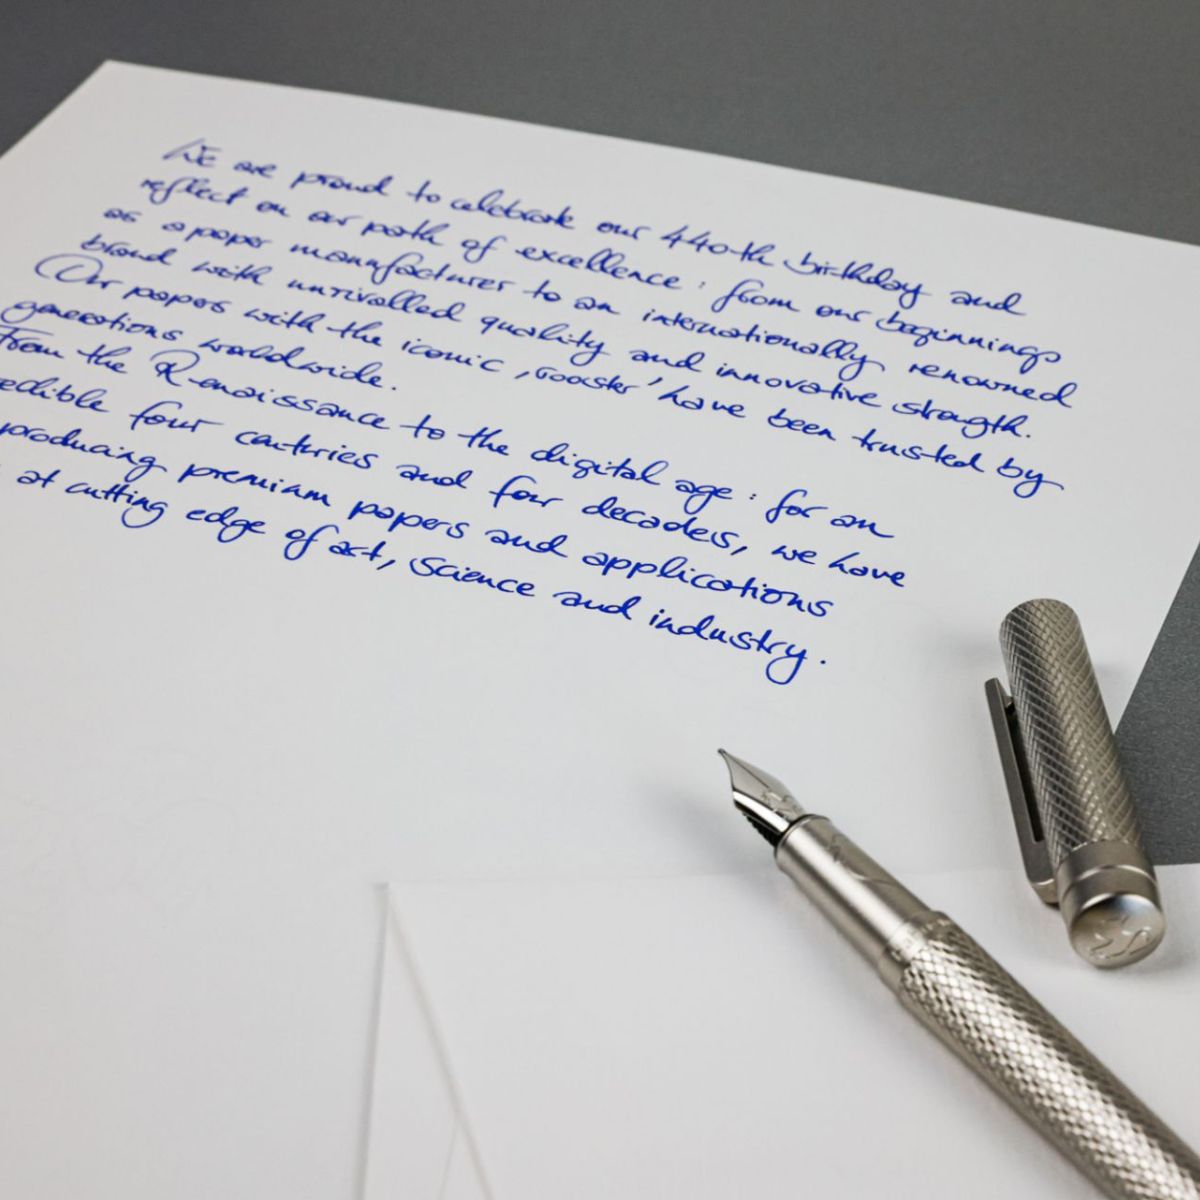 We are proud to celebrate our 440th birthday and
reflect on our path of excellence: from our beginnings
as a paper manufacturer to an internationally renowned
brand with unrivalled quality and innovative strength.
Our papers with the iconic ‚rooster' have been trusted by
generations worldwide.
From the Renaissance to the digital age: for an
edible four centuries and four decades, we have
producing premium papers and applications
at cutting edge of art, science and industry.